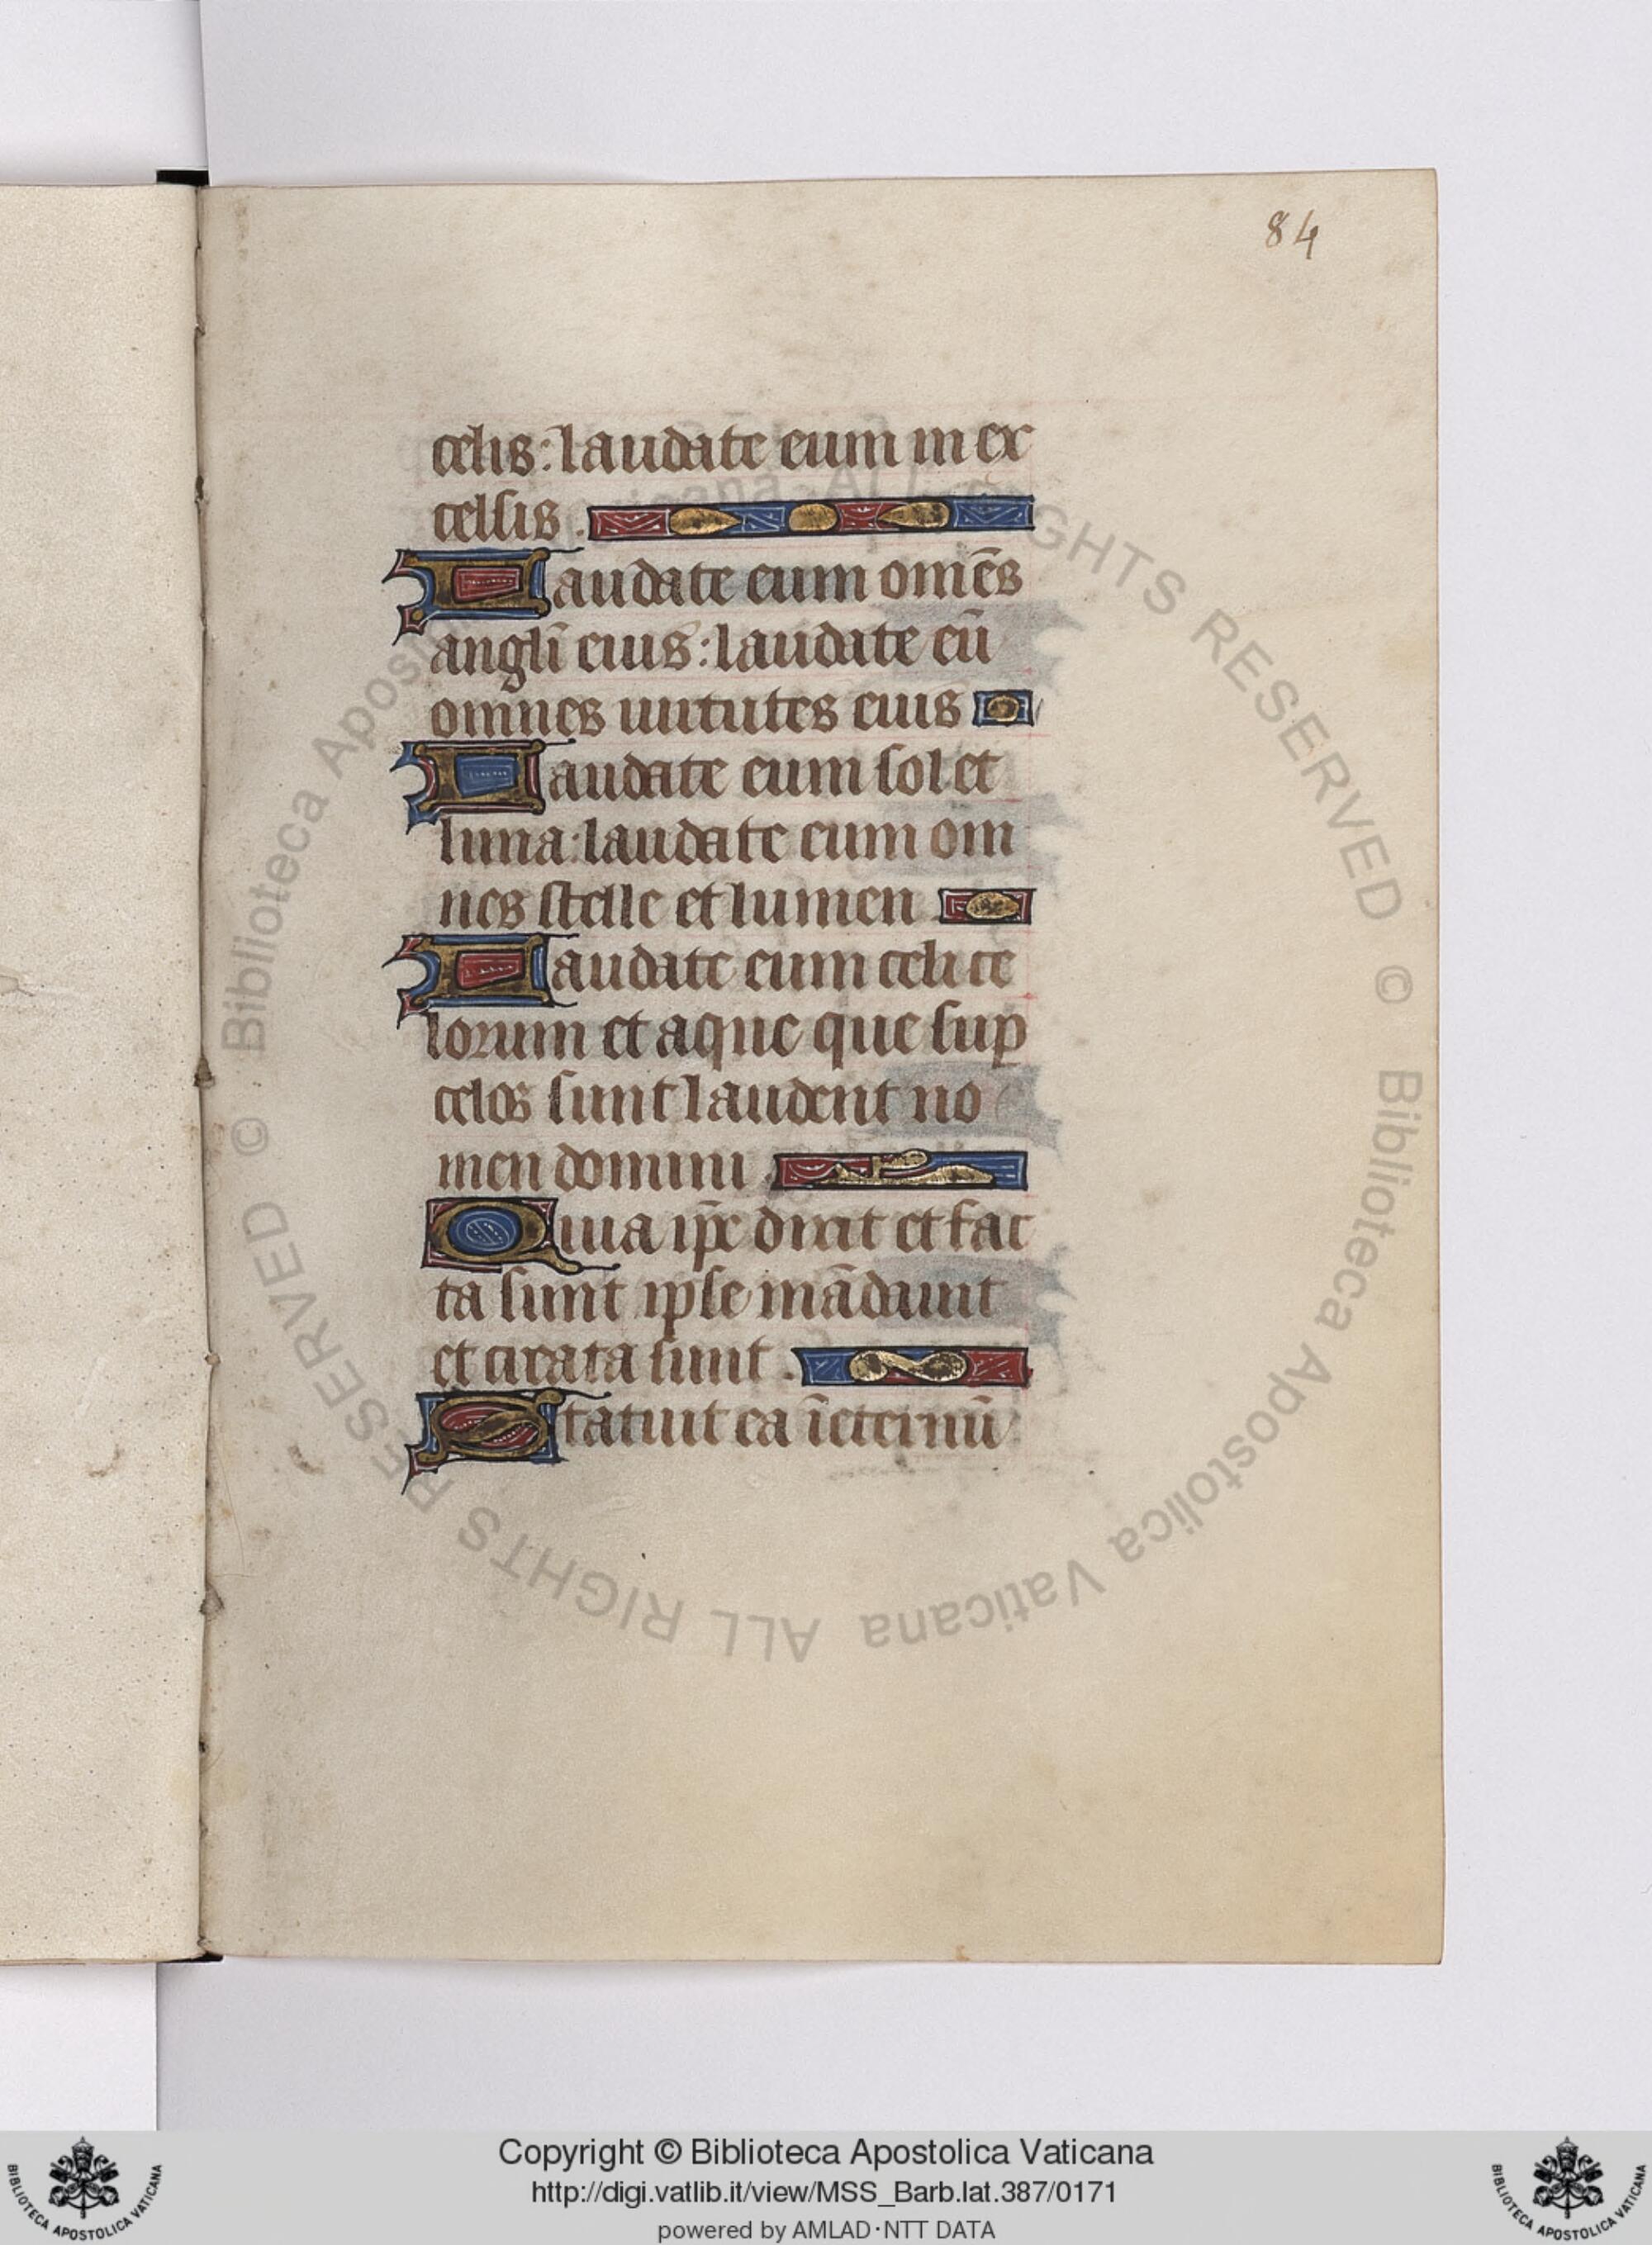 84
celis: laudate eum in ex
celsis.
Laudate eum om̄es
angl̄i eius: laudate eū
omnes uirtutes eius
Laudate eum sol et
luna: laudate eum om
nes stelle et lumen.
Laudate eum celi ce
lorum et aque que suꝑ
celos sunt laudent no
men domini.
Quia ip̄e dixit et fac
ta sunt ipse mādauit
et creata sunt.
Statuit ea īeternū
© Biblioteca Apostolica Vaticana ALL RIGHTS RESERVED © Biblioteca Apostolica Vaticana ALL RIGHTS RESERVED
Copyright © Biblioteca Apostolica Vaticana
http://digi.vatlib.it/view/MSS_Barb.lat.387/0171
powered by AMLAD·NTT DATA
BIBLIOTECA APOSTOLICA VATICANA
BIBLIOTECA APOSTOLICA VATICANA